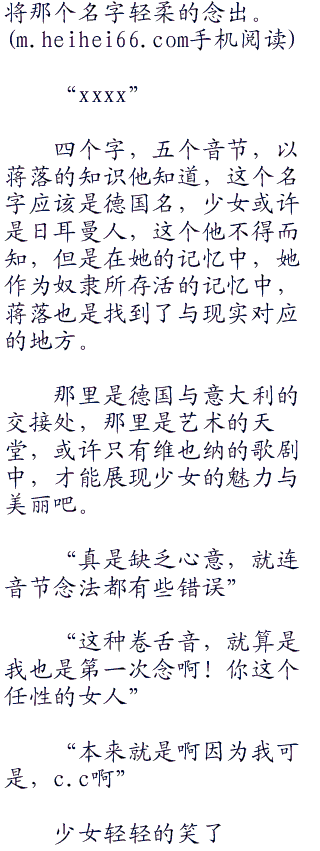 将那个名字轻柔的念出。
(m.heihei66.com手机阅读)
“xxxx”
四个字，五个音节，以
蒋落的知识他知道，这个名
字应该是德国名，少女或许
是日耳曼人，这个他不得而
知，但是在她的记忆中，她
作为奴隶所存活的记忆中，
蒋落也是找到了与现实对应
的地方。
那里是德国与意大利的
交接处，那里是艺术的天
堂，或许只有维也纳的歌剧
中，才能展现少女的魅力与
美丽吧。
“真是缺乏心意，就连
音节念法都有些错误”
“这种卷舌音，就算是
我也是第一次念啊！你这个
任性的女人”
“本来就是啊因为我可
是，c.c啊”
少女轻轻的笑了